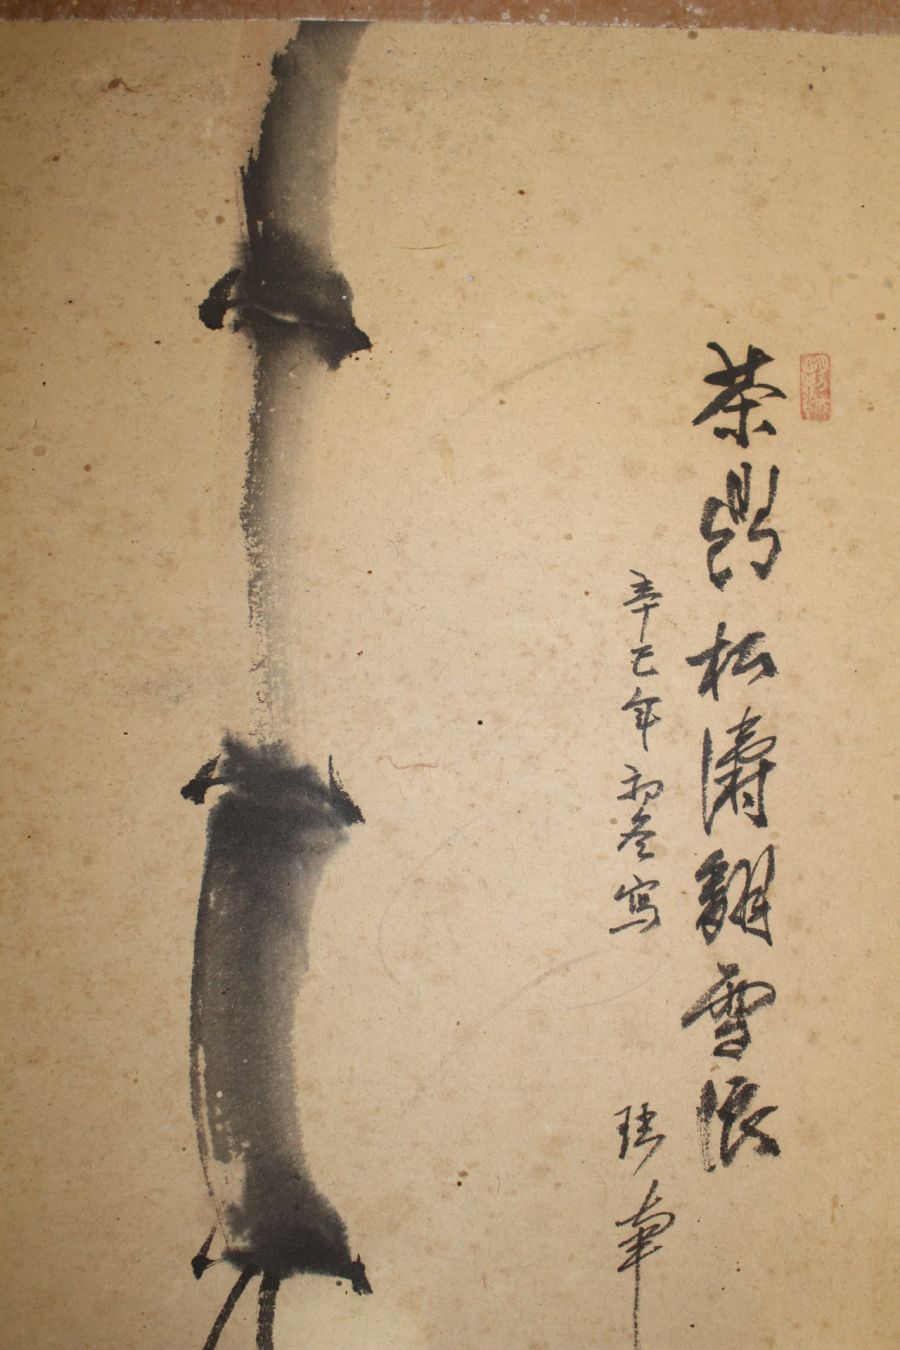 茶鼎松濤翻雪浪
辛巳年初冬写